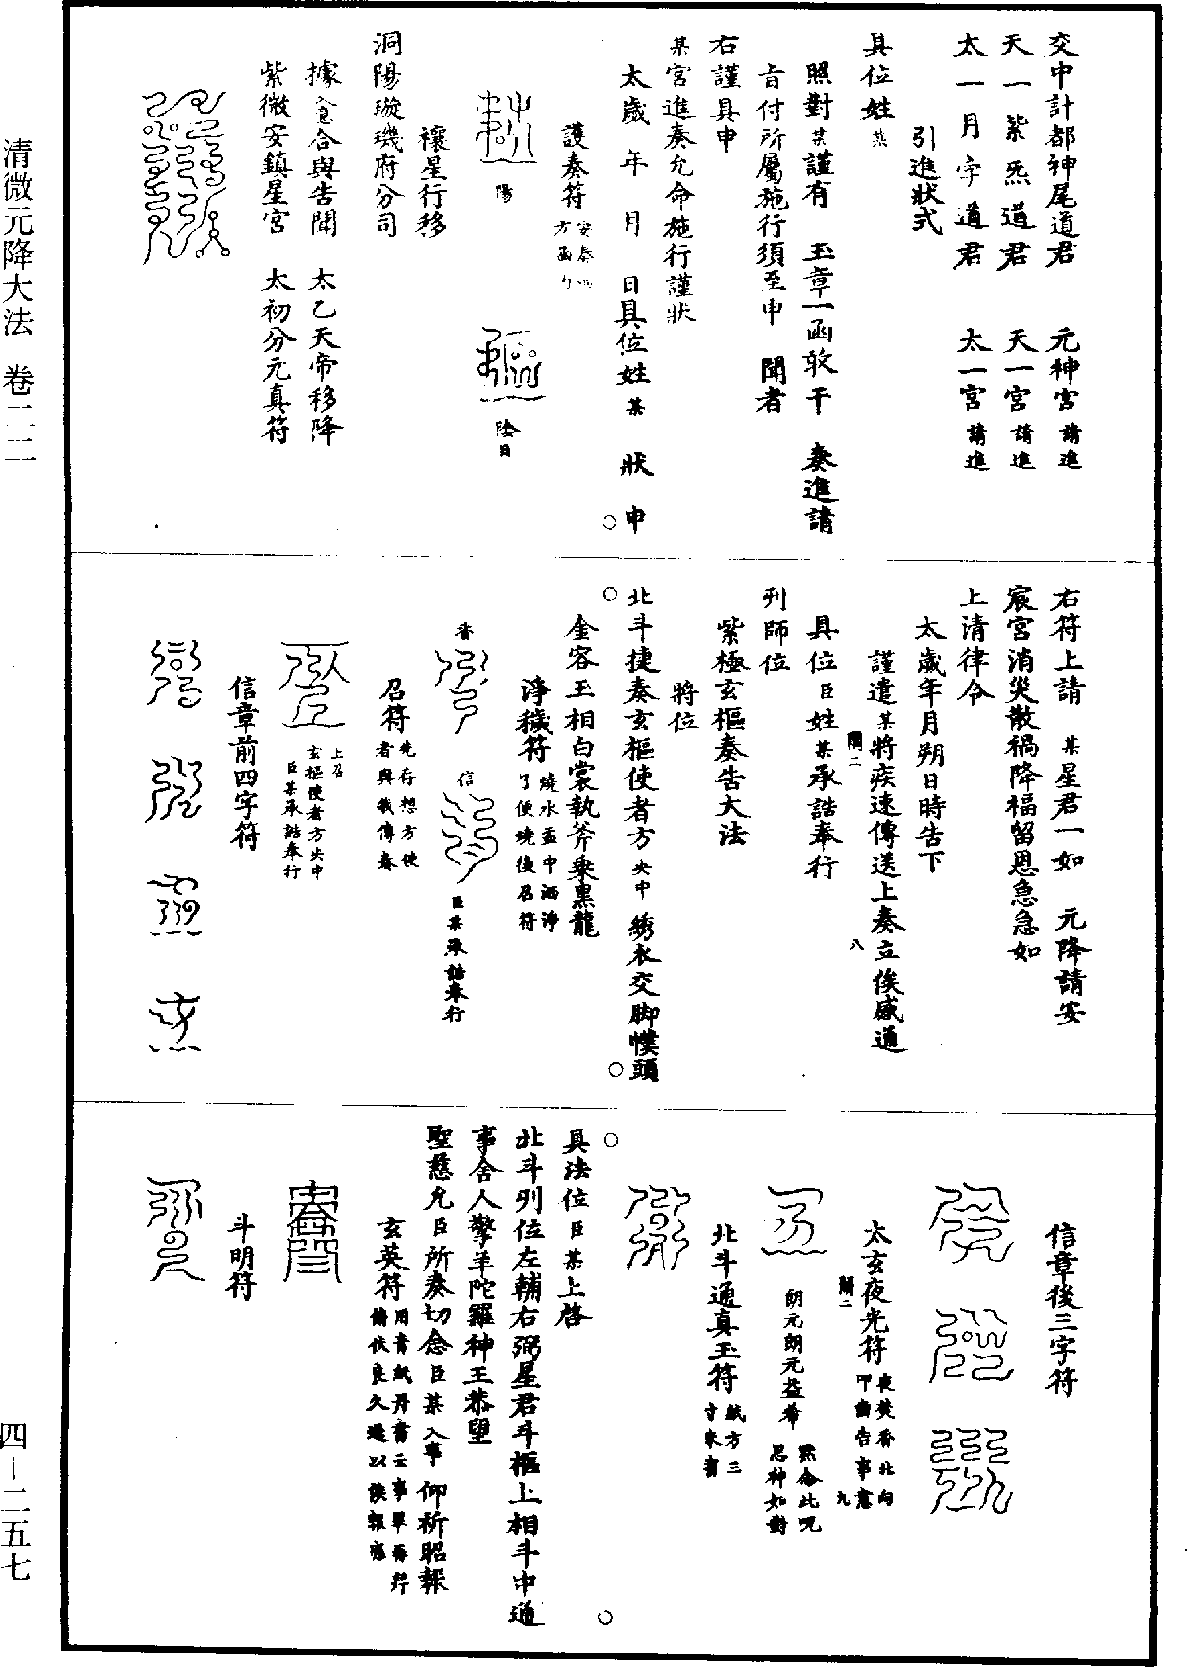 交中計都神尾道君　元神宮請進
天一紫炁道君　天一宮請進
太一月孛道君　太一宮請進
引進狀式
具位姓某
照對某謹有　玉章一函敢干　奏進請
旨付所屬施行須至申　聞者
右謹具申
某宮進奏允命施行謹狀
太歲　年　月　日具位姓某　狀　申
護奏符
陽
陰日
禳星行移
洞陽璇璣府分司
據食合與告聞　太乙天帝移降
紫微安鎮星宮　太初分元真符
右符上請　某星君一如　元降請安
宸宮消災散禍降福留恩急急如
上清律令
太歲年月朔日時告下
謹遣某將疾速傳送上奏立俟感通
具位臣姓某承誥奉行
列師位
紫極玄樞奏告大法
將位
北斗捷奏玄樞使者方央中綉衣交腳幞頭
金容玉相白裳執斧乘黑龍
淨穢符燒水盂中洒淨
了便燒後召符
香
信
臣某承誥奉行
召符先存想方使
者與我傳奏
上召
玄樞使者方央中
臣某承誥奉行
信章前四字符
信章後三字符
太玄夜光符夜焚香北向
叩齒告事意
朗元朗元益希
默念此咒
思神如對
北斗通真玉符紙方三
寸朱書
具法位臣某上啓
北斗列位左輔右弼星君斗樞上相斗中通
事舍人擎羊陀羅神王恭望
聖慈允臣所奏切念臣某入事仰祈昭報
玄英符用青紙丹書云事畢再拜
俯伏良久退以俟報應
斗明符
清微元降大法　卷二二
四—二五七